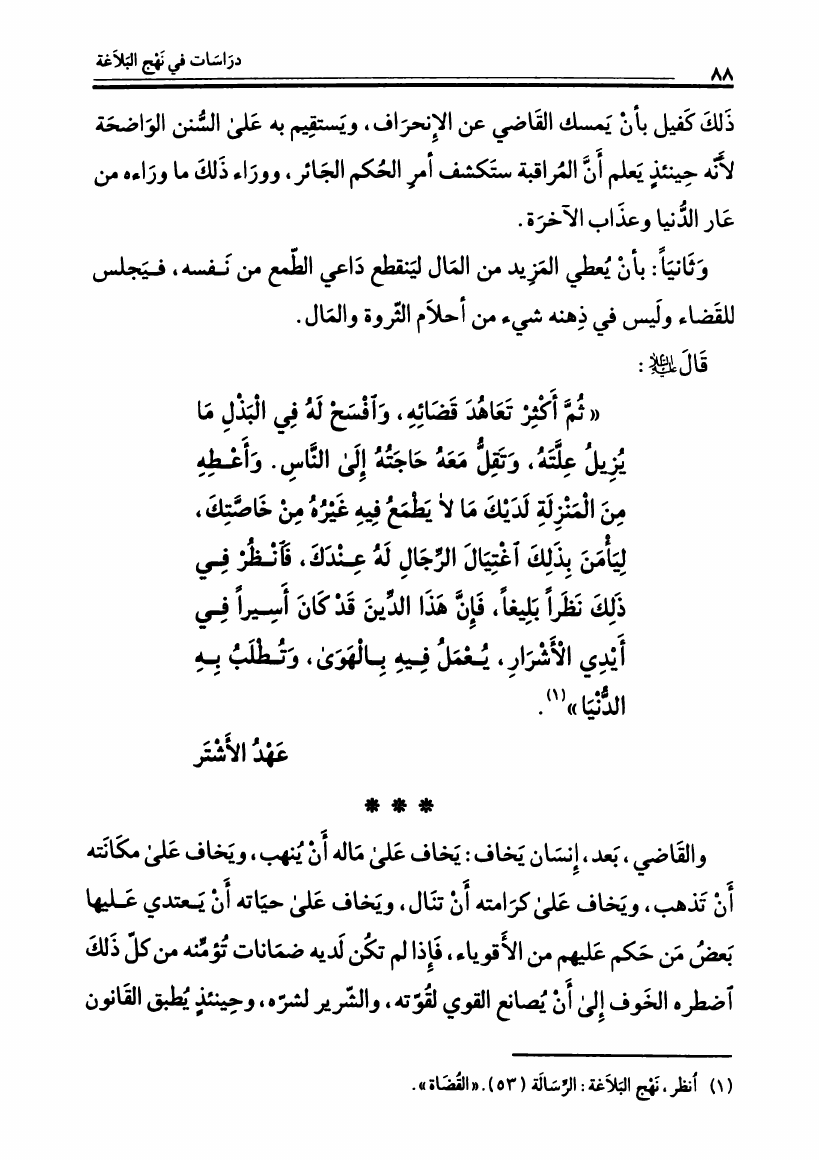 ٨٨ دِرَاسَات في نَهْج البَلاَغة
ذَلكَ كَفيل بأنْ يَمسك القَاضي عن الإنحرَاف، ويَستقِيم به عَلىٰ السُّنن الوَاضحَة
لأنّه حِينئذٍ يَعلم أنَّ المُراقبة ستَكشف أمرِ الحُكم الجَائر، وورَاء ذَلكَ ما ورَاءه من
عَار الدُّنيا وعذَاب الآخرَة.
وَثَانيَاً: بأنْ يُعطي المَزِيد من المَال ليَنقطع دَاعي الطّمع من نَفسه، فيَجلس
للقَضاء ولَيس في ذِهنه شيء من أحلاَم الثّروة والمَال.
قَالَ ﷺ:
« ثُمَّ أَكْثِرْ تَعَاهُدَ قَضَائِهِ، وَٱفْسَحْ لَهُ فِي الْبَذْلِ مَا
يُزِيلُ عِلَّتَهُ، وَتَقِلُّ مَعَهُ حَاجَتُهُ إِلَىٰ النَّاسِ. وَأَعْطِهِ
مِنَ الْمَنْزِلَةِ لَدَيْكَ مَا لاَ يَطْمَعُ فِيهِ غَيْرُهُ مِنْ خَاصَّتِكَ،
لِيَأْمَنَ بِذَلِكَ ٱغْتِيَالَ الرِّجَالِ لَهُ عِنْدَكَ، فَٱنْظُرْ فِي
ذَلِكَ نَظَراً بَلِيغاً، فَإِنَّ هَذَا الدِّينَ قَدْ كَانَ أَسِيراً فِي
أَيْدِي الْأَشْرَارِ، يُعْمَلُ فِيهِ بِالْهَوَىٰ، وَتُطْلَبُ بِهِ
الدُّنْيَا»(١).
عَهْدُ الأَشْتَر
* * *
والقَاضي، بَعد، إنسَان يَخاف: يَخاف عَلىٰ مَاله أَنْ يُنهب، ويَخاف عَلىٰ مكَانَته
أَنْ تَذهب، ويَخاف عَلىٰ كرَامته أَنْ تنَال، ويَخاف عَلىٰ حيَاته أَنْ يَعتدي عَليها
بَعضُ مَن حَكم عَليهم من الأَقوياء، فَإذا لم تكُن لَديه ضمَانات تُؤمِّنه من كلّ ذَلكَ
ٱضطره الخَوف إلىٰ أَنْ يُصانع القوي لقُوّته، والشّرير لشرّه، وحِينئذٍ يُطبق القَانون
(١) اُنظر، نَهْج البَلاَغة: الرِّسَالَة (٥٣).«القُضَاة».